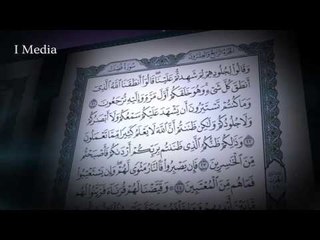 I Media
الجزء الرابع والعشرون
سورة فصلت
وَقَالُوا۟ لِجُلُودِهِمْ لِمَ شَهِدتُّمْ عَلَيْنَا قَالُوٓا۟ أَنطَقَنَا ٱللَّهُ ٱلَّذِىٓ
أَنطَقَ كُلَّ شَىْءٍ وَهُوَ خَلَقَكُمْ أَوَّلَ مَرَّةٍ وَإِلَيْهِ تُرْجَعُونَ ٢١
وَمَا كُنتُمْ تَسْتَتِرُونَ أَن يَشْهَدَ عَلَيْكُمْ سَمْعُكُمْ وَلَآ أَبْصَٰرُكُمْ
وَلَا جُلُودُكُمْ وَلَٰكِن ظَنَنتُمْ أَنَّ ٱللَّهَ لَا يَعْلَمُ كَثِيرًا مِّمَّا تَعْمَلُونَ ٢٢
وَذَٰلِكُمْ ظَنُّكُمُ ٱلَّذِى ظَنَنتُم بِرَبِّكُمْ أَرْدَىٰكُمْ فَأَصْبَحْتُم
مِّنَ ٱلْخَٰسِرِينَ ٢٣ فَإِن يَصْبِرُوا۟ فَٱلنَّارُ مَثْوًى لَّهُمْ وَإِن يَسْتَعْتِبُوا۟
فَمَا هُم مِّنَ ٱلْمُعْتَبِينَ ٢٤ وَقَيَّضْنَا لَهُمْ قُرَنَآءَ فَزَيَّنُوا۟ لَهُم